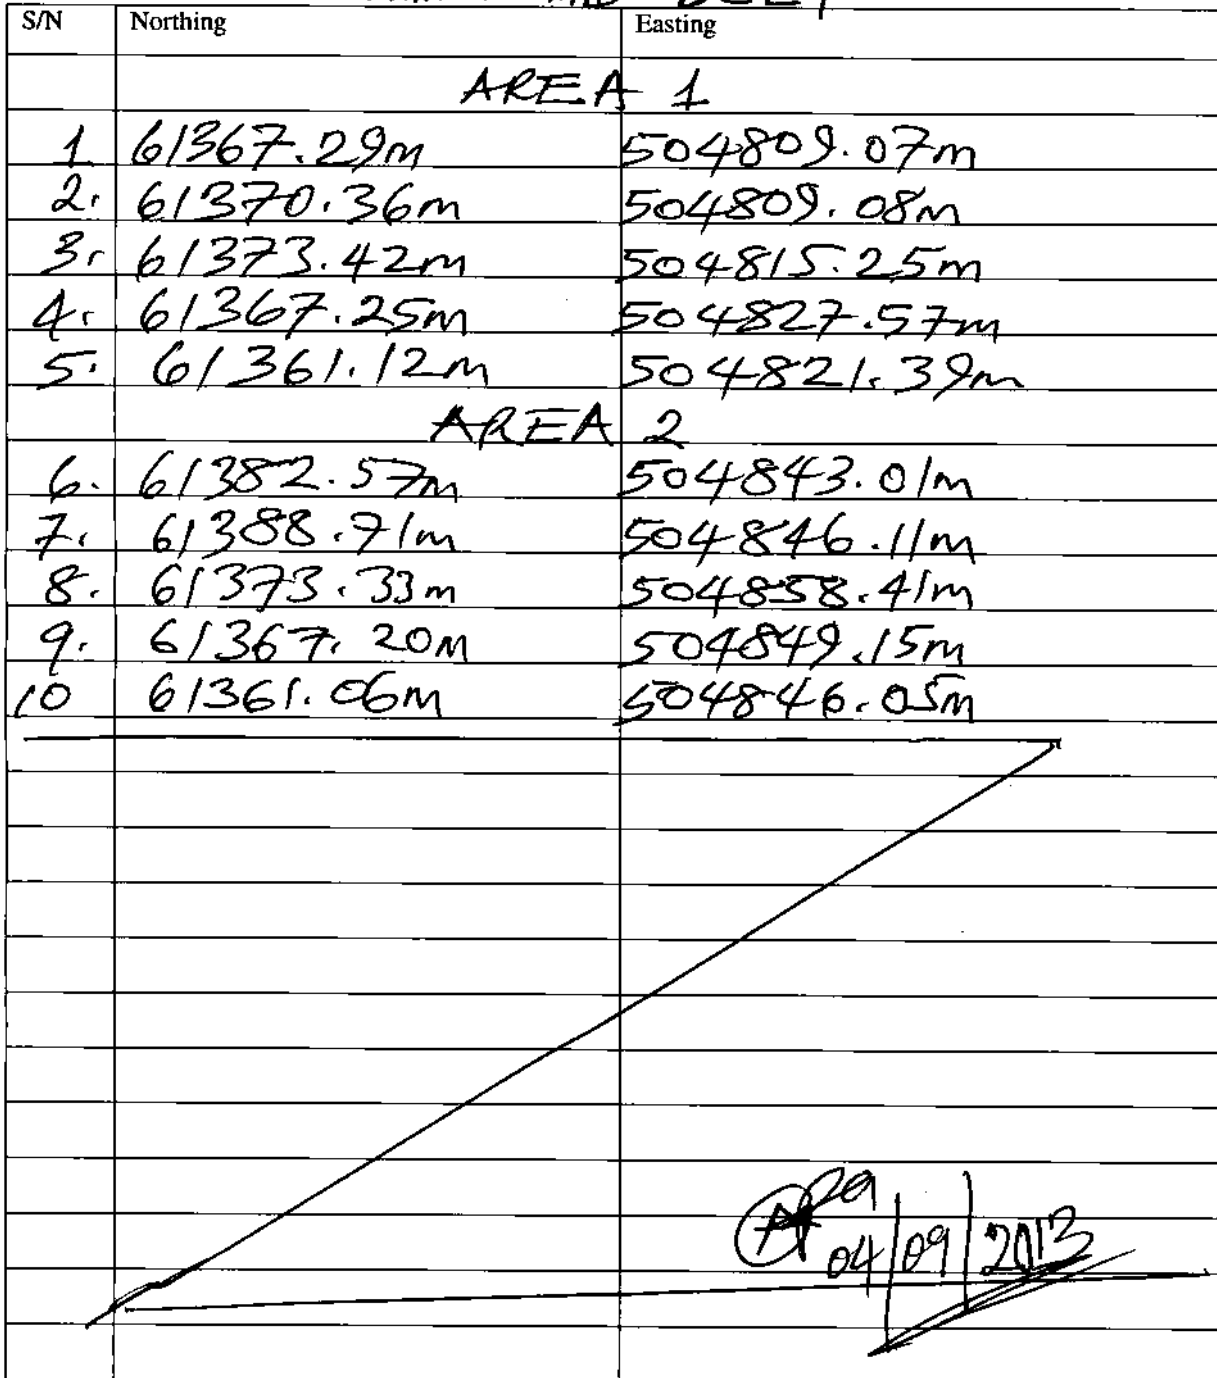 S/N Northing Easting
AREA 1
1 61367.29m 504809.07m
2. 61370.36m 504809.08m
3. 61373.42m 504815.25m
4. 61367.25m 504827.57m
5. 61361.12m 504821.39m
AREA 2
6. 61382.57m 504843.01m
7. 61388.71m 504846.11m
8. 61373.33m 504858.41m
9. 61367.20m 504849.15m
10 61361.06m 504846.05m
04/09/2013